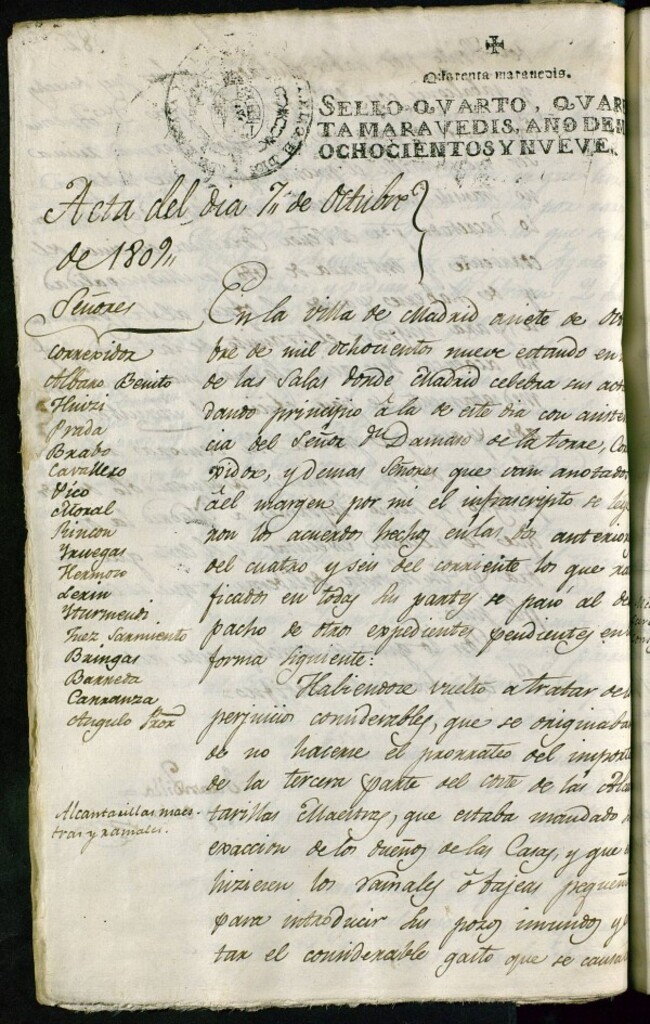 Quarenta maravedis.
SELLO QVARTO, QVAR
TA MARAVEDIS, AÑO DE M
OCHOCIENTOS Y NVEVE.
Acta del dia 7,, de Octubre
de 1809,,
Señores
correxidor
Albaro Benito
Huizi
Prada
Brabo
Cavallero
Vico
Moral
Rincon
Yruegas
Hermoso
Lerin
Yturmendi
Inez Sarmiento
Bringas
Barreda
Carranza
Angulo Pror
Alcantarillas maes-
tras y ramales.
En la villa de Madrid a siete de Octu
bre de mil ochocientos nueve estando en
de las Salas donde Madrid celebra sus acu
dando principio à la de este dia con asisten
cia del Señor Dn Damaso de la torre, Co
xidor, y demas Señores que van anotados
àl margen por mi el infrascripto se leye
ron los acuerdos hechos en las dos anterior
del cuatro y seis del corriente los que ra
ficados en todas sus partes se pasó al des
pacho de otros expedientes pendientes en
forma siguiente:
Habiendose vuelto a tratar de
perjuicios considerables, que se originaba
de no hacerse el prorrateo del importe
de la tercera parte del coste de las Alcan
tarillas Maestras, que estaba mandado
exaccion de los dueños de las Casas, y que
hiziesen los ramales ò bajeas pequeñ
para introducir sus pozos inmundos y
tar el considerable gasto que se causa